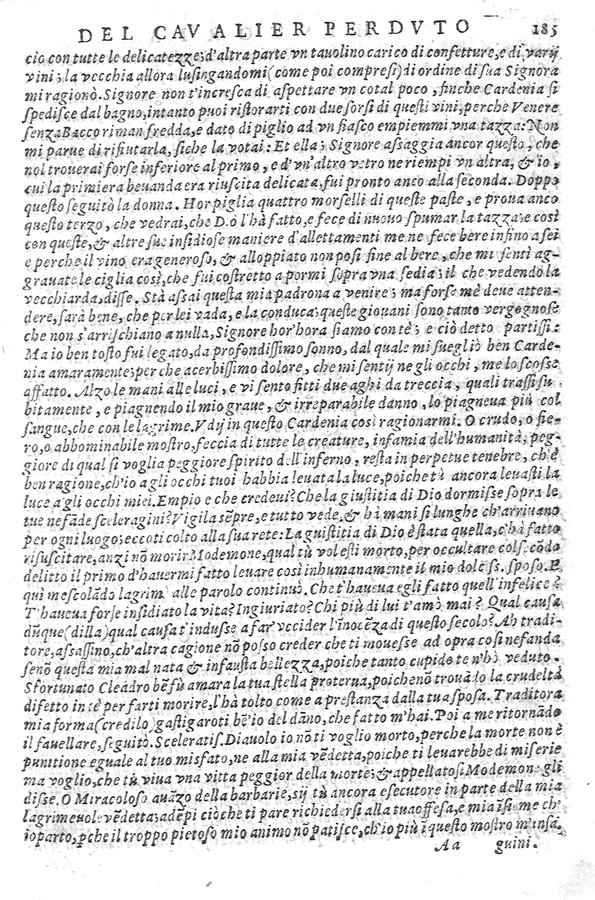 DEL CAVALIER PERDVTO 185
cio con tutte le delicatezze; d'altra parte vn tauolino carico di confetture, e di varij
vini; la vecchia allora lusingandomi (come poi compresi) di ordine di sua Signora
mi ragionò. Signore non t'incresca di aspettare vn cotal poco, finche Cardenia si
spedisce dal bagno, intanto puoi ristorarti con due sorsi di questi vini, perche Venere
senza Bacco riman fredda, e dato di piglio ad vn fiasco empiemmi vna tazza: Non
mi parue di rifiutarla, siche la votai: Et ella; Signore assaggia ancor questo, che
nol trouerai forse inferiore al primo, e d'vn'altro vetro ne riempì vn'altra, & io,
cui la primiera beuanda era riuscita delicata, fui pronto anco alla seconda. Doppo
questo seguitò la donna. Hor piglia quattro morselli di queste paste, e proua anco
questo terzo, che vedrai, che Dio l'hà fatto, e fece di nuouo spumar la tazza: e così
con queste, & altre sue insidiose maniere d'allettamenti me ne fece bere infino a sei
e perche il vino era generoso, & alloppiato non posi fine al bere, che mi sentì ag-
grauate le ciglia così, che fui costretto a pormi sopra vna sedia; il che vedendo la
vecchiarda, disse. Stà assai questa mia padrona a venire; ma forse me deue atten-
dere, sarà bene, che per lei vada, e la conduca; queste giouani sono tanto vergognose
che non s'arrischiano a nulla, Signore hor'hora siamo con tè; e ciò detto partissi:
Ma io ben tosto fui legato, da profondissimo sonno, dal quale mi suegliò ben Carde-
nia amaramente; per che acerbissimo dolore, che mi sentij ne gli occhi, me lo scosse
affatto. Alzo le mani alle luci, e vi sento fitti due aghi da treccia, quali trassi su-
bitamente, e piagnendo il mio graue, & irreparabile danno, lo piagneua più col
sangue, che con le lagrime. Vdij in questo Cardenia così ragionarmi. O crudo, o fie-
ro, o abbominabile mostro, feccia di tutte le creature, infamia dell'humanità, peg-
giore di qual si voglia peggiore spirito dell'inferno, resta in perpetue tenebre, ch'è
ben ragione, ch'io a gli occhi tuoi habbia leuata la luce, poiche tù ancora leuasti la
luce a gli occhi miei. Empio e che credeui? Che la giustitia di Dio dormisse sopra le
tue nefãde sceleragini? Vigila sẽpre, e tutto vede, & hà mani sì lunghe ch'arriuano
per ogni luogo; eccoti colto alla sua rete: La guistitia di Dio è stata quella, c'hà fatto
risuscitare, anzi nõ morir Modemone, qual tù volesti morto, per occultare col secõdo
delitto il primo d'hauermi fatto leuare così inhumanamente il mio dolciss. sposo. E
qui mescolãdo lagrime alle parolo continuò. Che t'haueua egli fatto quell'infelice?
T'haueua forse insidiato la vita? Ingiuriato? Chi più di lui t'amò mai? Qual causa
dũque (dilla) qual causa t'indusse a far'vccider l'ĩnocẽza di questo secolo? Ah tradi-
tore, assassino, ch'altra cagione nõ posso creder che ti mouesse ad opra così nefanda
senõ questa mia mal nata & infausta bellezza, poiche tanto cupido te n'hò veduto.
Sfortunato Cleadro bẽ fù amara la tua stella proterua, poiche nõ trouãdo la crudeltà
difetto in te per farti morire, l'hà tolto come a prestanza dalla tua sposa. Traditora
mia forma (credilo) gastigaroti bẽ io del dãno, che fatto m'hai. Poi a me ritornãdo
il fauellare, seguitò. Sceleratis. Diauolo io nõ ti voglio morto, perche la morte non è
punitione eguale al tuo misfato, ne alla mia vẽdetta, poiche ti leuarebbe di miserie
ma voglio, che tù viua vna vitta peggior della morte; & appellatosi Modemone gli
disse. O Miracoloso auãzo della barbarie, sij tù ancora esecutore in parte della mia
lagrimeuole vẽdetta; adẽpi ciò che ti pare richiedersi alla tua offesa, e mia ĩsieme ch'
io parto, ꝑche il troppo pietoso mio animo nõ patisce, ch'io più ĩ questo mostro m'insã-
Aa guini.